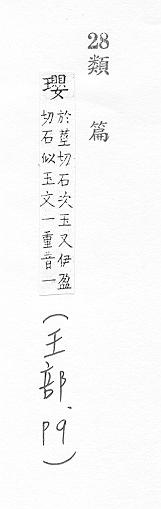 28
類篇
瓔
於莖切石次玉又伊盈
切石似玉文一重音一
(王部、p9)